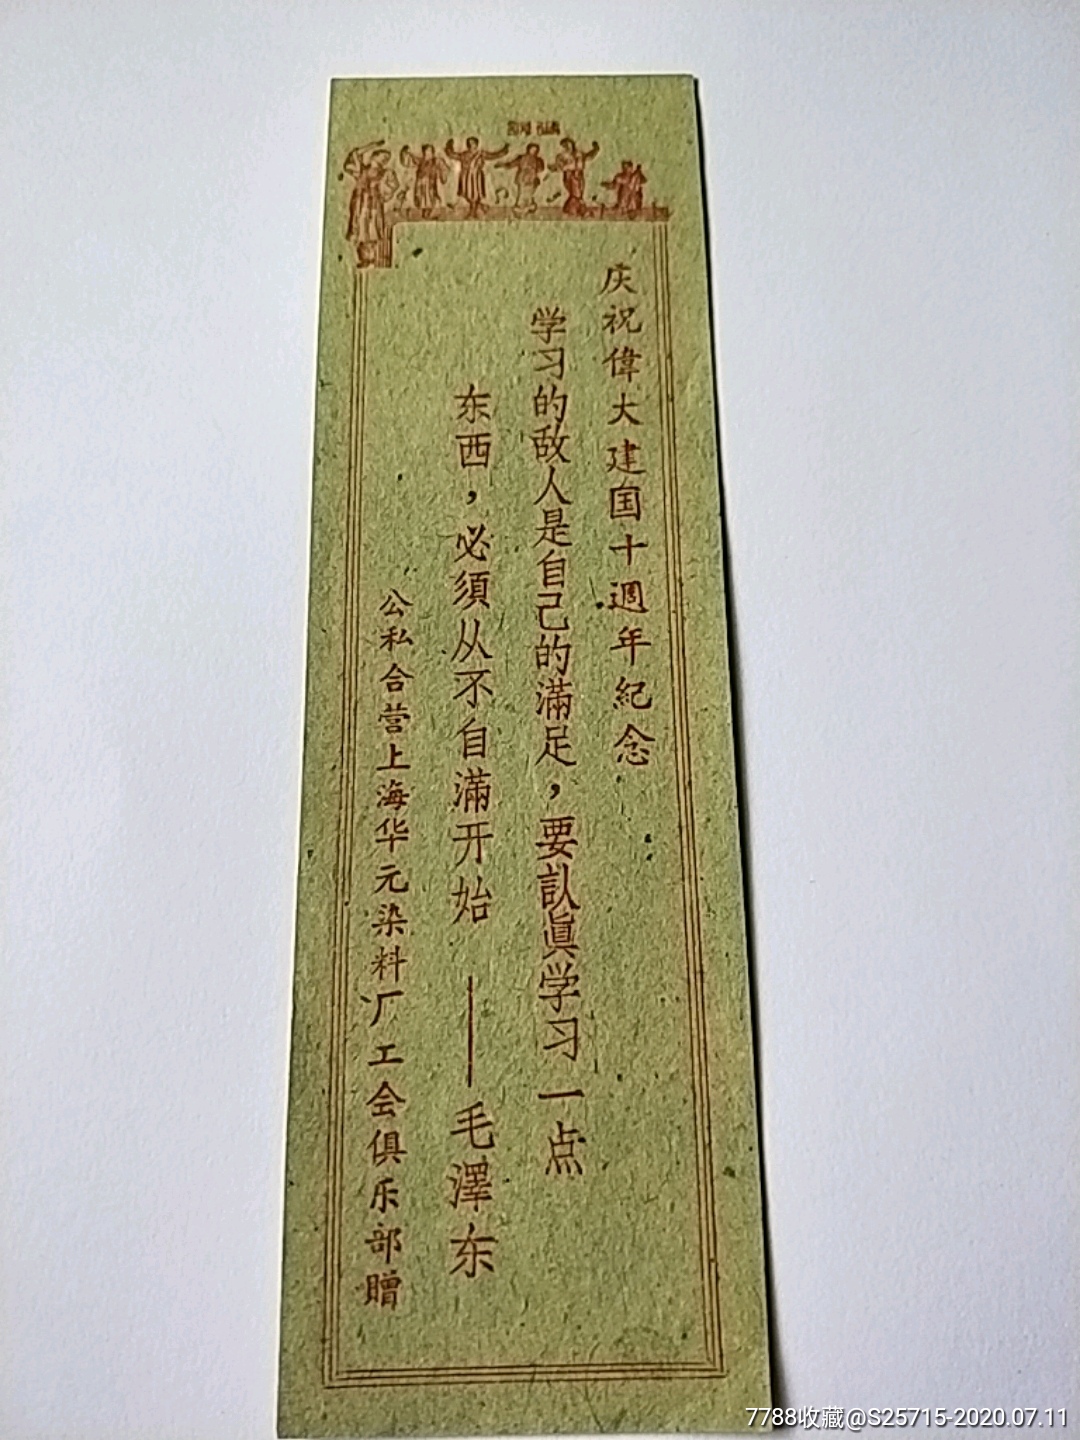 庆祝偉大建国十週年紀念
学习的敌人是自己的滿足，要認眞学习一点
东西，必須从不自滿开始 ——毛澤东
公私合营上海华元染料厂工会俱乐部贈
7788收藏@S25715-2020.07.11